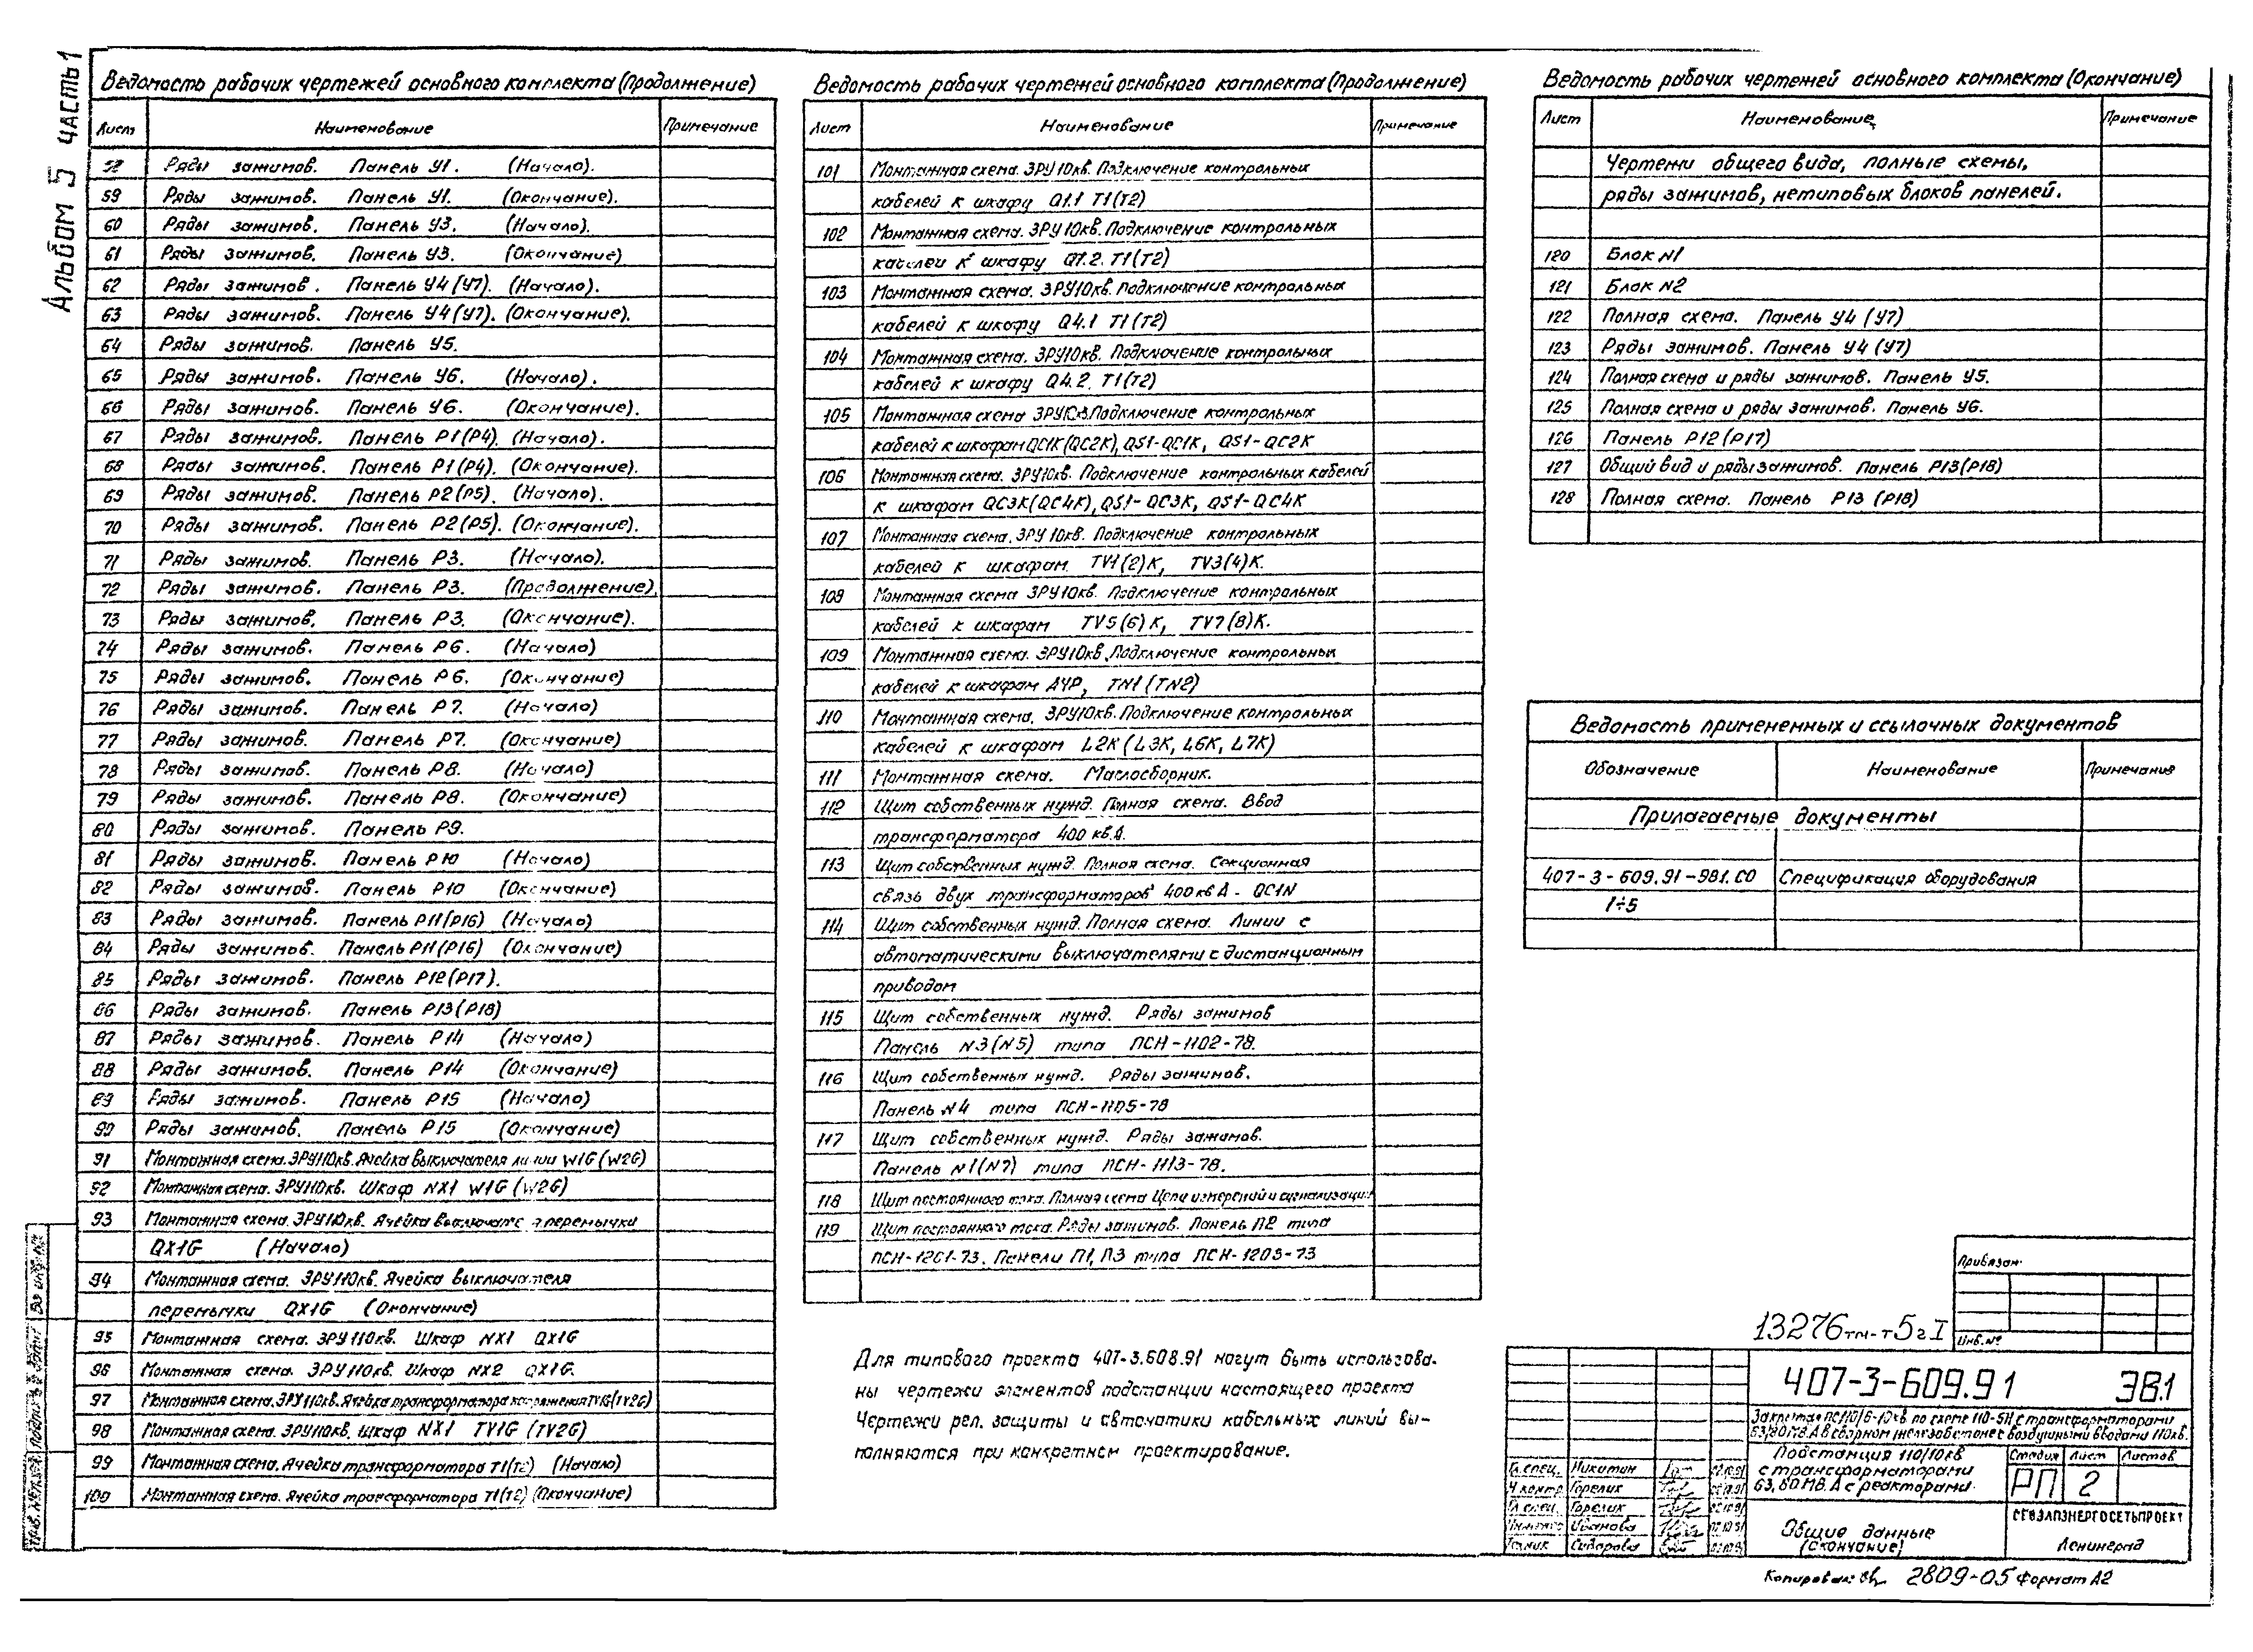 Альбом 5 часть 1
Ведомость рабочих чертежей основного комплекта (Продолжение)
Лист Наименование Примечание
58 Ряды зажимов. Панель У1. (Начало).
59 Ряды зажимов. Панель У1. (Окончание).
60 Ряды зажимов. Панель У3. (Начало).
61 Ряды зажимов. Панель У3. (Окончание)
62 Ряды зажимов. Панель У4 (У7). (Начало).
63 Ряды зажимов. Панель У4 (У7). (Окончание).
64 Ряды зажимов. Панель У5.
65 Ряды зажимов. Панель У6. (Начало).
66 Ряды зажимов. Панель У6. (Окончание).
67 Ряды зажимов. Панель Р1 (Р4). (Начало).
68 Ряды зажимов. Панель Р1 (Р4). (Окончание).
69 Ряды зажимов. Панель Р2 (Р5). (Начало).
70 Ряды зажимов. Панель Р2 (Р5). (Окончание).
71 Ряды зажимов. Панель Р3. (Начало).
72 Ряды зажимов. Панель Р3. (Продолжение).
73 Ряды зажимов. Панель Р3. (Окончание).
74 Ряды зажимов. Панель Р6. (Начало)
75 Ряды зажимов. Панель Р6. (Окончание)
76 Ряды зажимов. Панель Р7. (Начало)
77 Ряды зажимов. Панель Р7. (Окончание)
78 Ряды зажимов. Панель Р8. (Начало)
79 Ряды зажимов. Панель Р8. (Окончание)
80 Ряды зажимов. Панель Р9.
81 Ряды зажимов. Панель Р10 (Начало)
82 Ряды зажимов. Панель Р10 (Окончание)
83 Ряды зажимов. Панель Р11 (Р16) (Начало)
84 Ряды зажимов. Панель Р11 (Р16) (Окончание)
85 Ряды зажимов. Панель Р12 (Р17).
86 Ряды зажимов. Панель Р13 (Р18)
87 Ряды зажимов. Панель Р14 (Начало)
88 Ряды зажимов. Панель Р14 (Окончание)
89 Ряды зажимов. Панель Р15 (Начало)
90 Ряды зажимов. Панель Р15 (Окончание)
91 Монтажная схема. ЗРУ110кв. Ячейка выключателя линии W1G (W2G)
92 Монтажная схема. ЗРУ110кв. Шкаф NX1 W1G (W2G)
93 Монтажная схема. ЗРУ110кв. Ячейка выключателя перемычки
QX1G (Начало)
94 Монтажная схема. ЗРУ110кв. Ячейка выключателя
перемычки QX1G (Окончание)
95 Монтажная схема. ЗРУ110кв. Шкаф NX1 QX1G
96 Монтажная схема. ЗРУ110кв. Шкаф NX2 QX1G.
97 Монтажная схема. ЗРУ110кв. Ячейка трансформатора напряжения TV1G (TV2G)
98 Монтажная схема. ЗРУ110кв. Шкаф NX1 TV1G (TV2G)
99 Монтажная схема. Ячейка трансформатора T1 (T2) (Начало)
100 Монтажная схема. Ячейка трансформатора T1 (T2) (Окончание)
Ведомость рабочих чертежей основного комплекта (Продолжение)
Лист Наименование Примечание
101 Монтажная схема. ЗРУ10кв. Подключение контрольных
кабелей к шкафу Q1.1 T1 (T2)
102 Монтажная схема. ЗРУ10кв. Подключение контрольных
кабелей к шкафу Q1.2. T1 (T2)
103 Монтажная схема. ЗРУ10кв. Подключение контрольных
кабелей к шкафу Q4.1 T1 (T2)
104 Монтажная схема. ЗРУ10кв. Подключение контрольных
кабелей к шкафу Q4.2. T1 (T2)
105 Монтажная схема ЗРУ10кв. Подключение контрольных
кабелей к шкафам QC1K (QC2K), QS1-QC1K, QS1-QC2K
106 Монтажная схема. ЗРУ10кв. Подключение контрольных кабелей
к шкафам QC3K (QC4K), QS1-QC3K, QS1-QC4K
107 Монтажная схема. ЗРУ10кв. Подключение контрольных
кабелей к шкафам TV1(2)K, TV3(4)K.
108 Монтажная схема ЗРУ10кв. Подключение контрольных
кабелей к шкафам TV5(6)K, TV7(8)K.
109 Монтажная схема. ЗРУ10кв. Подключение контрольных
кабелей к шкафам АЧР, TN1 (TN2)
110 Монтажная схема. ЗРУ10кв. Подключение контрольных
кабелей к шкафам L2K (L3K, L6K, L7K)
111 Монтажная схема. Маслосборник.
112 Щит собственных нужд. Полная схема. Ввод
трансформатора 400 кв.А.
113 Щит собственных нужд. Полная схема. Секционная
связь двух трансформаторов 400кв А - QC1N
114 Щит собственных нужд. Полная схема. Линии с
автоматическими выключателями с дистанционным
приводом
115 Щит собственных нужд. Ряды зажимов
Панель N3 (N5) типа ПСН-1102-78.
116 Щит собственных нужд. Ряды зажимов.
Панель N4 типа ПСН-1105-78
117 Щит собственных нужд. Ряды зажимов.
Панель N1 (N7) типа ПСН-1113-78.
118 Щит постоянного тока. Полная схема Цепи измерений и сигнализации
119 Щит постоянного тока. Ряды зажимов. Панель П2 типа
ПСН-1201-73. Панели П1, П3 типа ПСН-1203-73
Для типового проекта 407-3.608.91 могут быть использова-
ны чертежи элементов подстанции настоящего проекта
Чертежи рел. защиты и автоматики кабельных линий вы-
полняются при конкретном проектирование.
Ведомость рабочих чертежей основного комплекта (Окончание)
Лист Наименование Примечание
Чертежи общего вида, полные схемы,
ряды зажимов, нетиповых блоков панелей.
120 Блок N1
121 Блок N2
122 Полная схема. Панель У4 (У7)
123 Ряды зажимов. Панель У4 (У7)
124 Полная схема и ряды зажимов. Панель У5.
125 Полная схема и ряды зажимов. Панель У6.
126 Панель Р12 (Р17)
127 Общий вид и ряды зажимов. Панель Р13 (Р18)
128 Полная схема. Панель Р13 (Р18)
Ведомость примененных и ссылочных документов
Обозначение Наименование Примечания
Прилагаемые документы
407-3-609.91-ЭВ1.СО Спецификация оборудования
1÷5
Привязан:
Инв. №
13276тм-т5 г I
407-3-609.91 ЭВ.1
Закрытая ПС 110/6-10кв по схеме 110-5Н с трансформаторами
63, 80 МВ.А в сборном железобетоне с воздушными вводами 110кв.
Подстанция 110/10кв
с трансформаторами
63, 80 МВ.А с реакторами.
Стадия Лист Листов
РП 2
Гл. спец. Никитин
Н контр Горелик
Гл. спец. Горелик
Иванова
Техник Сидорова
Общие данные
(Окончание)
СЕВЗАПЭНЕРГОСЕТЬПРОЕКТ
Ленинград
Копировал: 2809-05 Формат А2